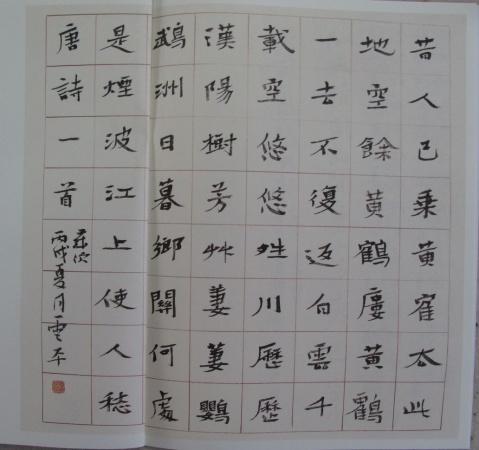 昔人已乘黄隺去此
地空餘黄鶴廔黄鶴
一去不復返白雲千
載空悠悠夝川歷歷
漢陽樹芳艸萋萋鸚
鵡洲日暮鄉關何處
是煙波江上使人愁
唐詩一首
歲次
丙戌夏月雲平